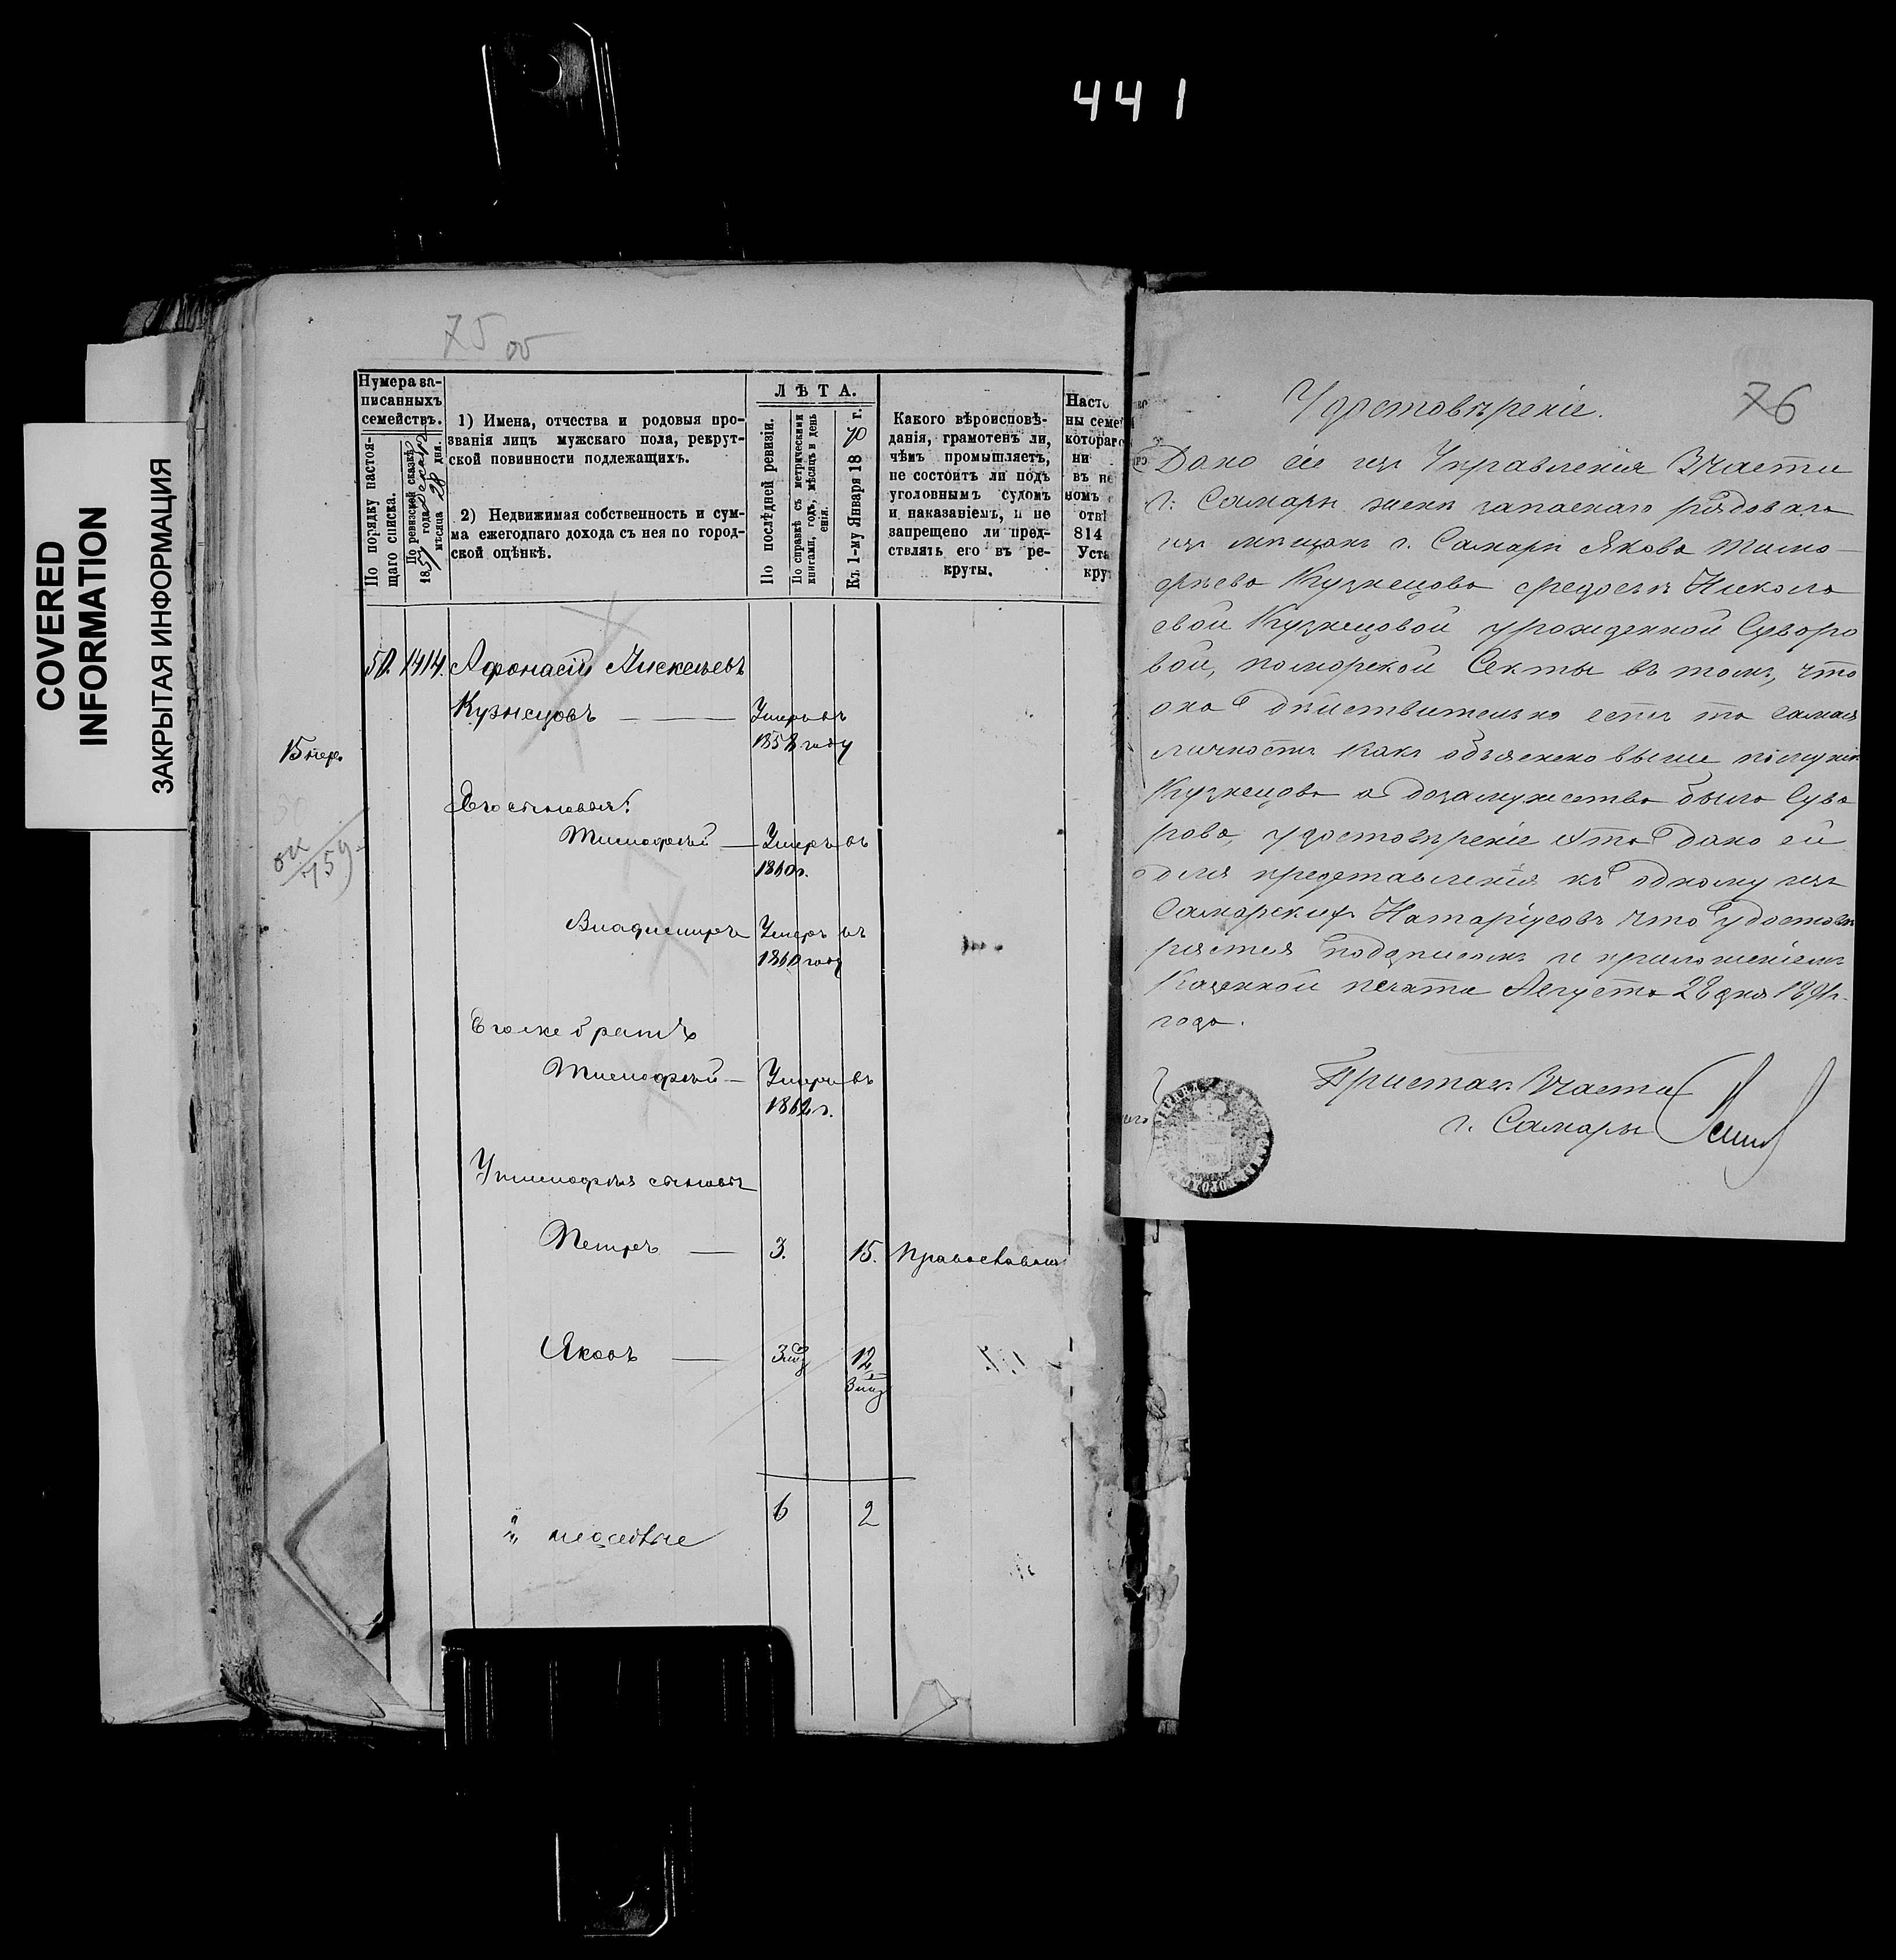 441
COVERED
INFORMATION
ЗАКРЫТАЯ ИНФОРМАЦИЯ
75 об
Нумера за-
писанныхъ
семействъ.
По порядку настоя-
щаго списка.
По ревизской сказкѣ
1857 года
мѣсяца 28 дня.
1) Имена, отчества и родовыя про-
званія лицъ мужскаго пола, рекрут-
ской повинности подлежащихъ.
2) Недвижимая собственность и сум-
ма ежегоднаго дохода съ нея по город-
ской оцѣнкѣ.
ЛѢТА.
По послѣдней ревизіи.
По справкѣ съ метрическими
книгами, годъ, мѣсяцъ и день
Къ 1-му Января 1870 г.
Какого вѣроисповѣ-
данія, грамотенъ ли,
чѣмъ промышляетъ,
не состоитъ ли подъ
уголовнымъ судомъ
и наказаніемъ, и не
запрещено ли пред-
ставлять его въ ре-
круты.
Насто
ны семе
котораго
ни
въ не
номъ
отвѣ
814
Уста
кру
50. 1414. Афонасій Алексѣевъ
Кузнецовъ — Умеръ въ
1858 году
15 пер.
Его сыновья:
Тимофей — Умеръ въ
1860 г.
159
Владимиръ Умеръ въ
1860 году
Его же братъ
Тимофей — Умеръ въ
1862 г.
У Тимофея сыновья
Петръ — 3. 15. Православный
Яковъ — 12
6 2
76
Удостовѣреніе.
Дано сіе изъ Управленія 3 части
г. Самары женѣ запаснаго рядоваго
изъ мѣщанъ г. Самары Якова Тимо-
фѣева Кузнецова Федосьѣ Никола
евой Кузнецовой урожденной Суворо
вой, поморской Секты въ томъ, что
она дѣйствительно есть та самая
личность какъ объяснено выше по мужу
Кузнецова а до замужества была Суво
рова, удостовѣреніе это дано ей
для представленія къ одному изъ
Самарскихъ Натаріусовъ что удостовѣ
ряется подписомъ и приложеніемъ
Казенной печати Августа 28 дня 1891 г.
года.
Приставъ 3 части
г. Самары